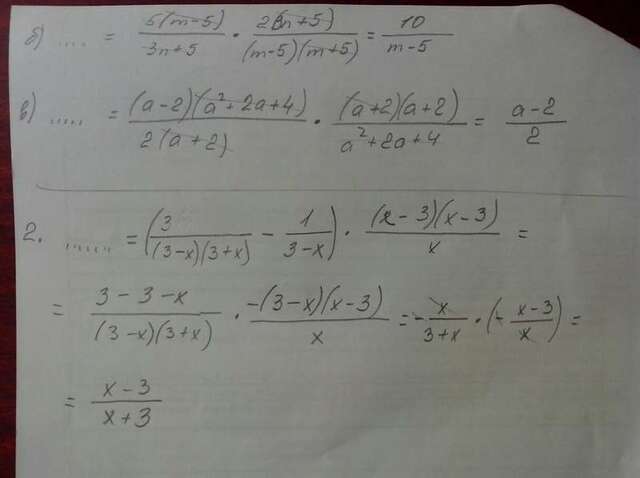 б) .... = 5(m-5)/3n+5 · 2(3n+5)/(m-5)(m+5) = 10/m-5
в) ..... = (a-2)(a²+2a+4)/2(a+2) · (a+2)(a+2)/a²+2a+4 = a-2/2
2. ...... = (3/(3-x)(3+x) - 1/3-x) · (x-3)(x-3)/x =
= 3-3-x/(3-x)(3+x) · -(3-x)(x-3)/x = -x/3+x · (-x-3/x) =
= x-3/x+3